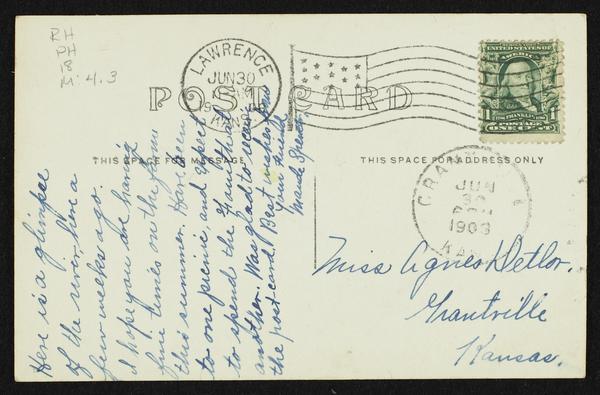 RH
PH
18
M: 4.3
LAWRENCE
JUN 30
KANS.
UNITED STATES OF AMERICA
FRANKLIN
1 POSTAGE 1
ONE CENT
POST CARD
THIS SPACE FOR MESSAGE
THIS SPACE FOR ADDRESS ONLY
JUN
30
1908
KAN
Here is a glimpse
of the river, here a
few weeks ago.
I hope you are having
fine times on the farm
this summer. Have been
to one picnic, and expect
to spend the Fourth at
another. Was glad to receive
the post-card. Best wishes from
your friend
Maude
Miss Agnes Detlor.
Grantville
Kansas.